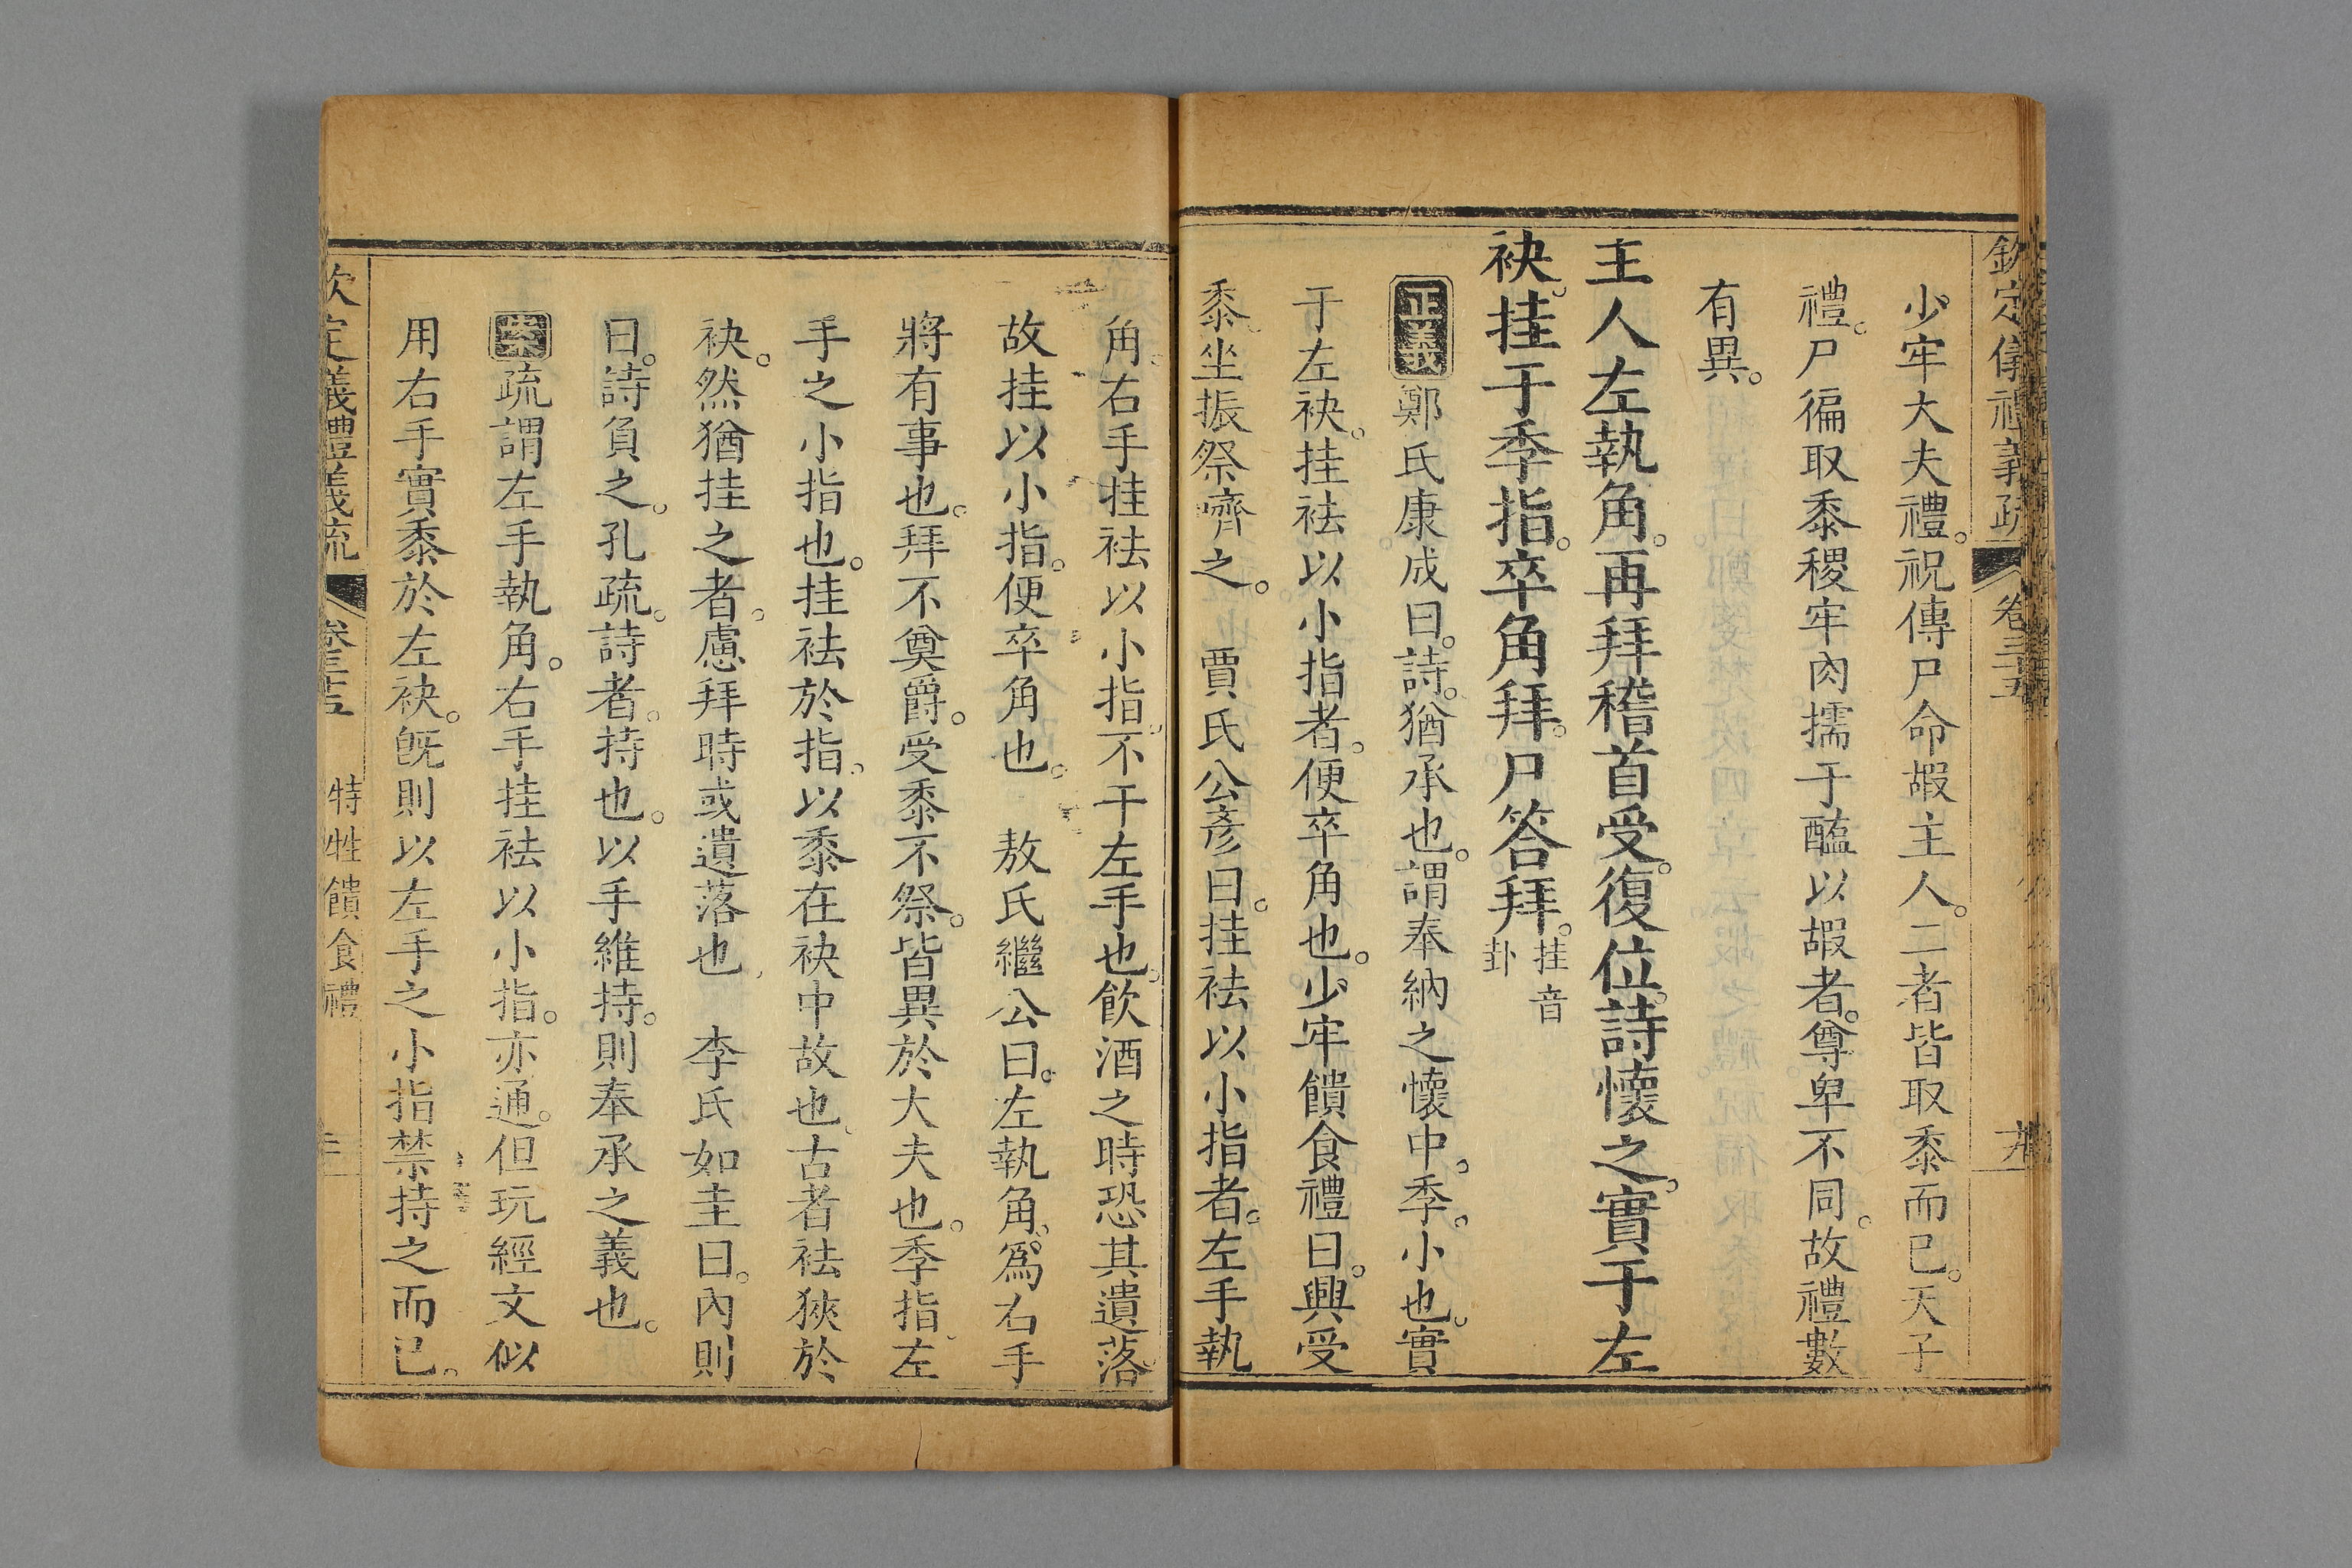 欽定儀禮義疏 卷三十五
少牢大夫禮。祝傳尸命嘏主人。二者皆取黍而已。天子
禮。尸徧取黍稷牢肉擩于醢以嘏者。尊卑不同。故禮數
有異。
主人左執角。再拜稽首受。復位。詩懷之。實于左
袂。挂于季指。卒角拜。尸答拜。挂音卦
正義鄭氏康成曰。詩。猶承也。謂奉納之懷中。季。小也。實
于左袂。挂袪以小指者。便卒角也。少牢饋食禮曰。興受
黍。坐振祭嚌之。 賈氏公彥曰。挂袪以小指者。左手執
角。右手挂袪以小指。不干左手也。飲酒之時恐其遺落
故挂以小指。便卒角也。 敖氏繼公曰。左執角。爲右手
將有事也。拜不奠爵。受黍不祭。皆異於大夫也。季指。左
手之小指也。挂袪於指。以黍在袂中故也。古者袪狹於
袂。然猶挂之者。慮拜時或遺落也 李氏如圭曰。內則
曰。詩負之。孔疏。詩者。持也。以手維持。則奉承之義也。
案疏謂左手執角。右手挂袪以小指。亦通。但玩經文似
用右手實黍於左袂。旣則以左手之小指禁持之而已。
欽定儀禮義疏 卷三十五 特牲饋食禮